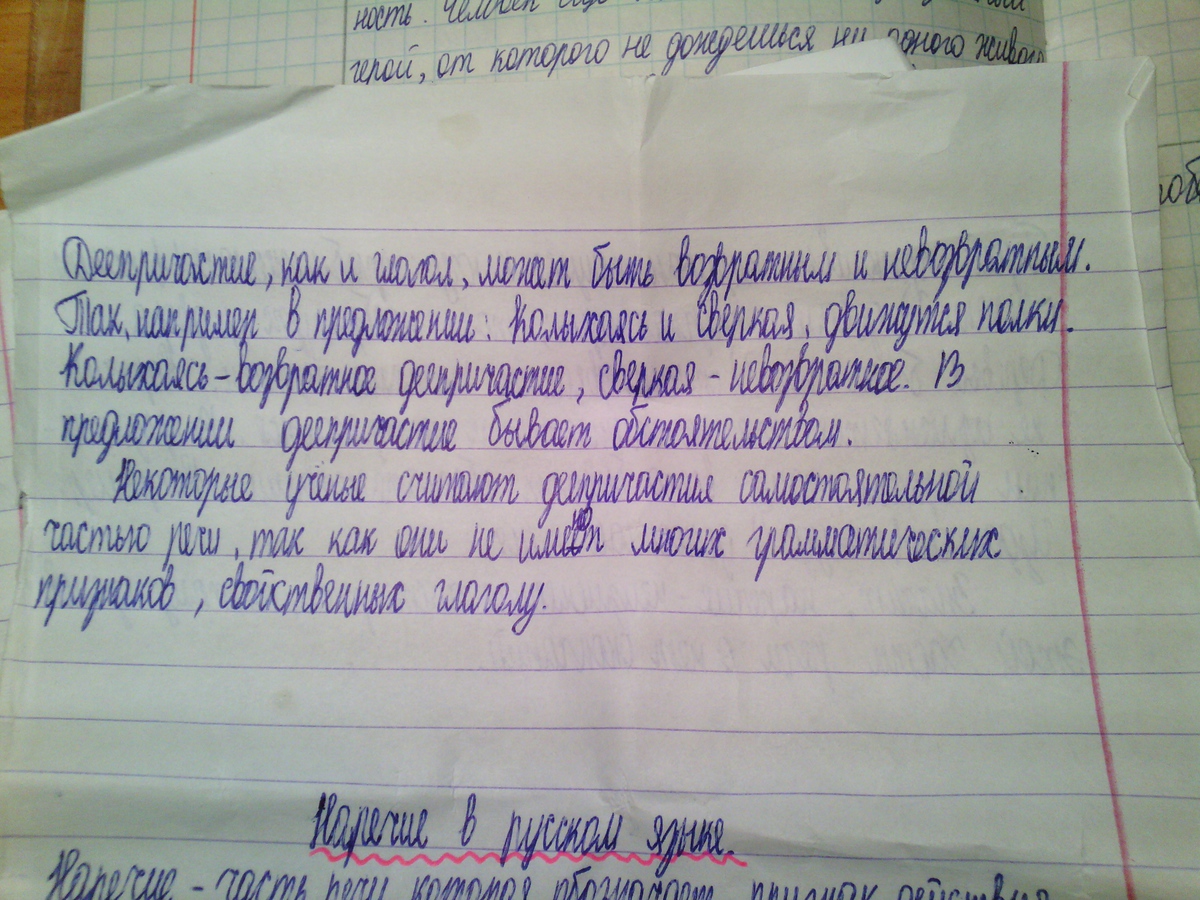 ность. Человек
герой, от которого не дождешься ни одного живого
Деепричастие, как и глагол, может быть возвратным и невозвратным.
Так, например в предложении: Колыхаясь и сверкая, движутся полки.
Колыхаясь – возвратное деепричастие, сверкая – невозвратное. В
предложении деепричастие бывает обстоятельством.
Некоторые учёные считают деепричастия самостоятельной
частью речи, так как они не имеют многих грамматических
признаков, свойственных глаголу.
Наречие в русском языке.
Наречие – часть речи которая обозначает признак действия